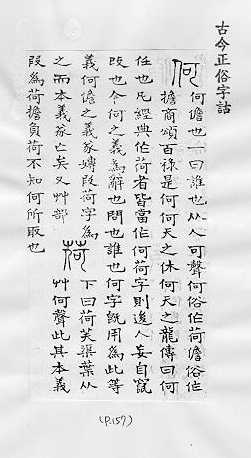 古今正俗字詁
何 何儋也一曰誰也从人可聲何俗作荷儋俗作
擔商頌百祿是何何天之休何天之龍傳曰何
任也凡經典作荷者皆當作何荷字則後人妄自竄
改也今何之義為辭也問也誰也何字既用為此等
義何儋之義㒸嫥叚荷字為
之而本義㒸亡矣又艸部
荷 下曰荷芙蕖葉从
艸何聲此其本義
叚為荷擔負荷不知何所取也
(P.157)